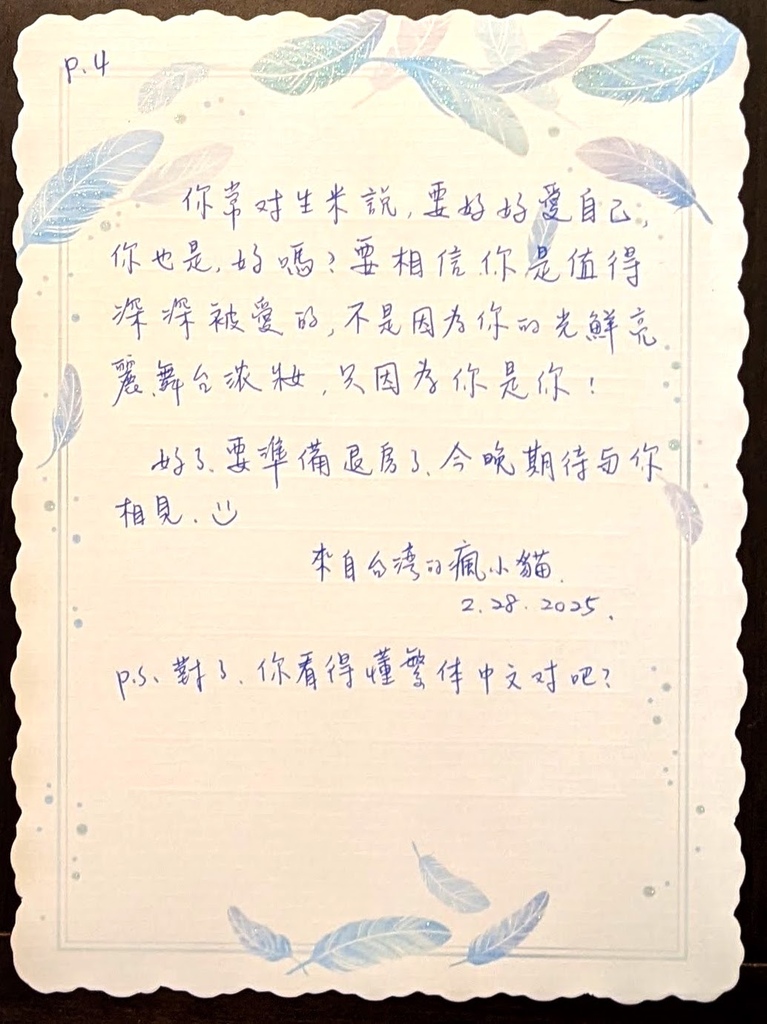 p.4
你常对生米說,要好好愛自己,
你也是,好嗎?要相信你是值得
深深被愛的,不是因为你的光鮮亮
麗、舞台浓妝,只因为你是你!
好了、要準備退房了、今晚期待与你
相見.
來自台湾的瘋小貓.
2.28.2025.
p.s. 對了、你看得懂繁体中文对吧?